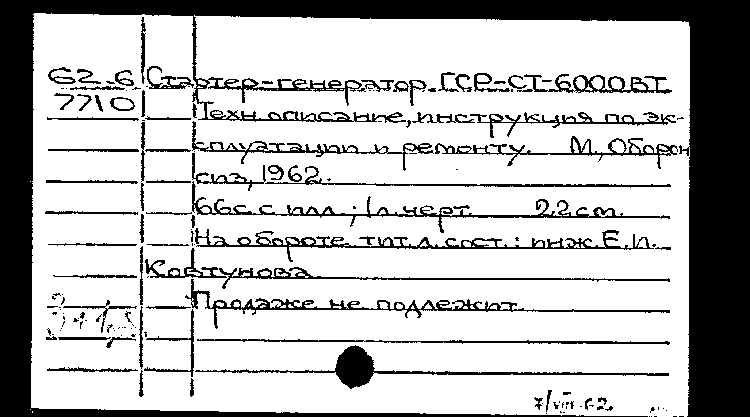 62.6 Стартер-генератор ГСР-СТ-6000ВТ.
7710 Техн. описание, инструкция по эк-
сплуатации и ремонту. М., Оборон
гиз, 1962.
66с. с илл.; 1л. черт. 22 cm.
На обороте тит. л. сост.: инж. Е.И.
Ковтунова
Продаже не подлежит
7/VIII-62.